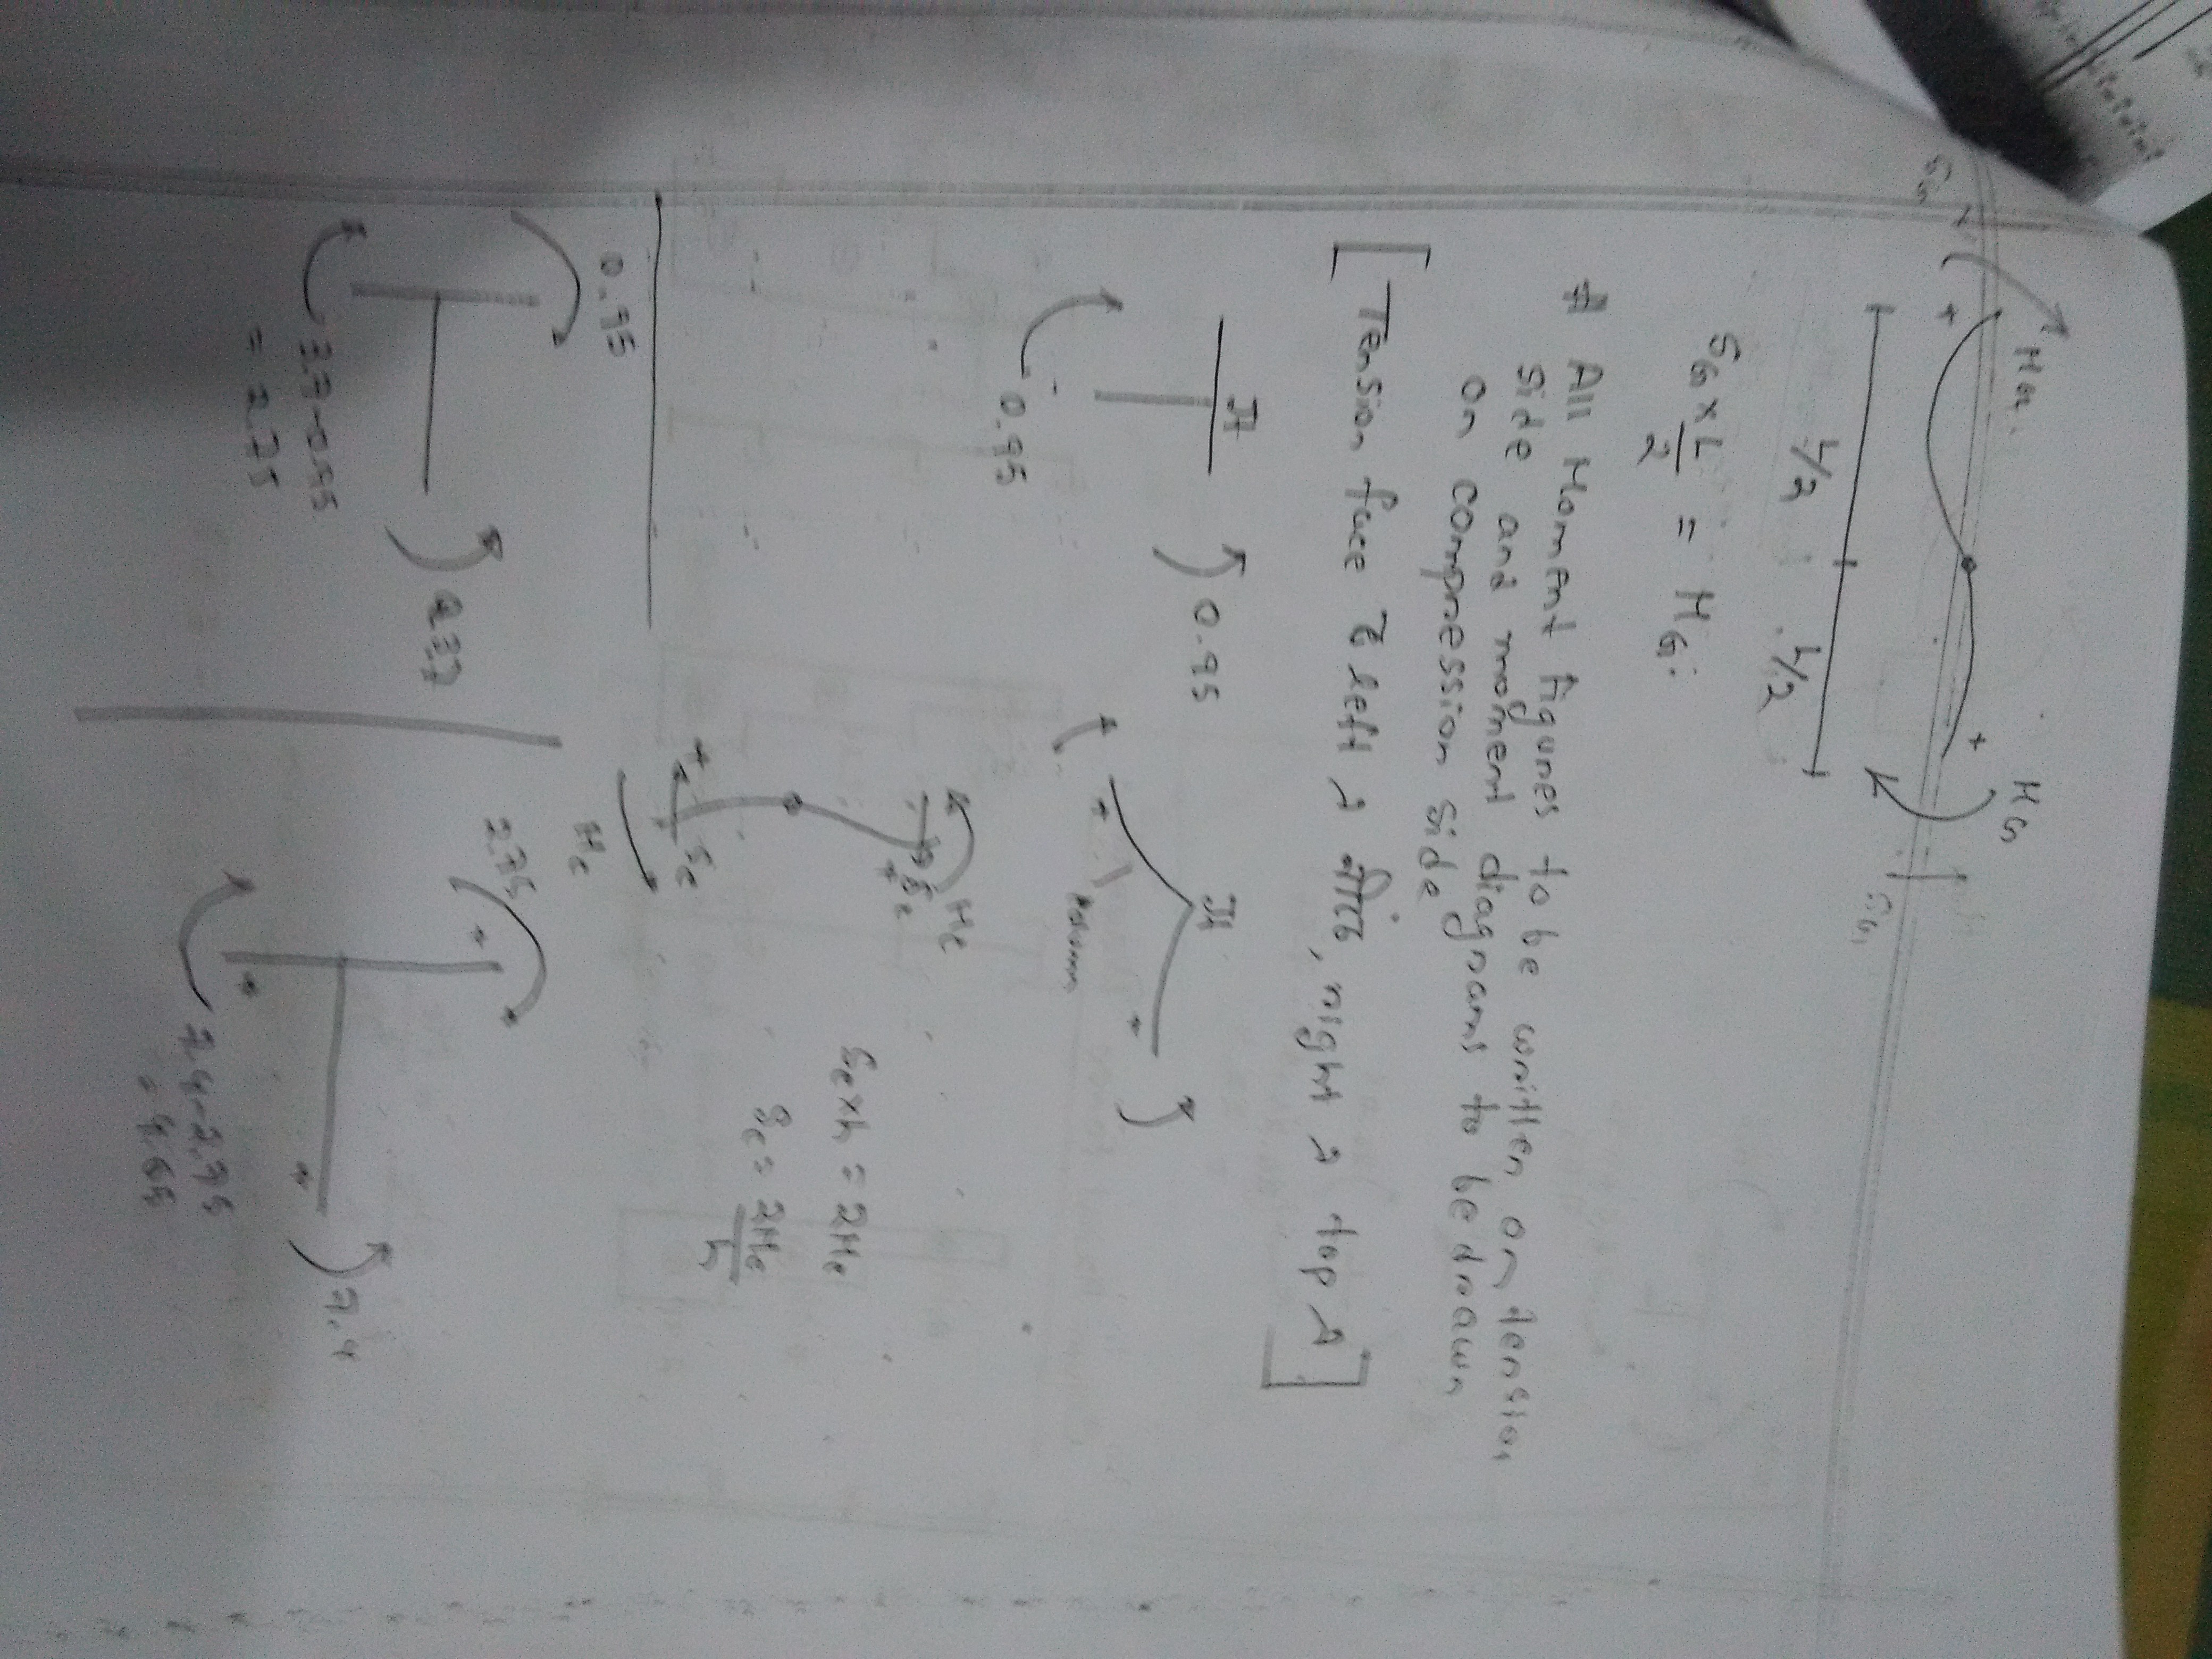 MG
MG
SG
L/2
L/2
SG × L/2 = MG.
# All Moment figures to be written on tension
side and moment diagrams to be drawn
on compression side
[Tension face
left
right
top
]
JH
0.95
0.95
JH
Mc
Sc
Sc × h = 2Mc
Sc = 2Mc/h
Sc
Mc
0.95
3.7-0.95
= 2.75
2.75
7.4
7.4-2.75
= 4.65